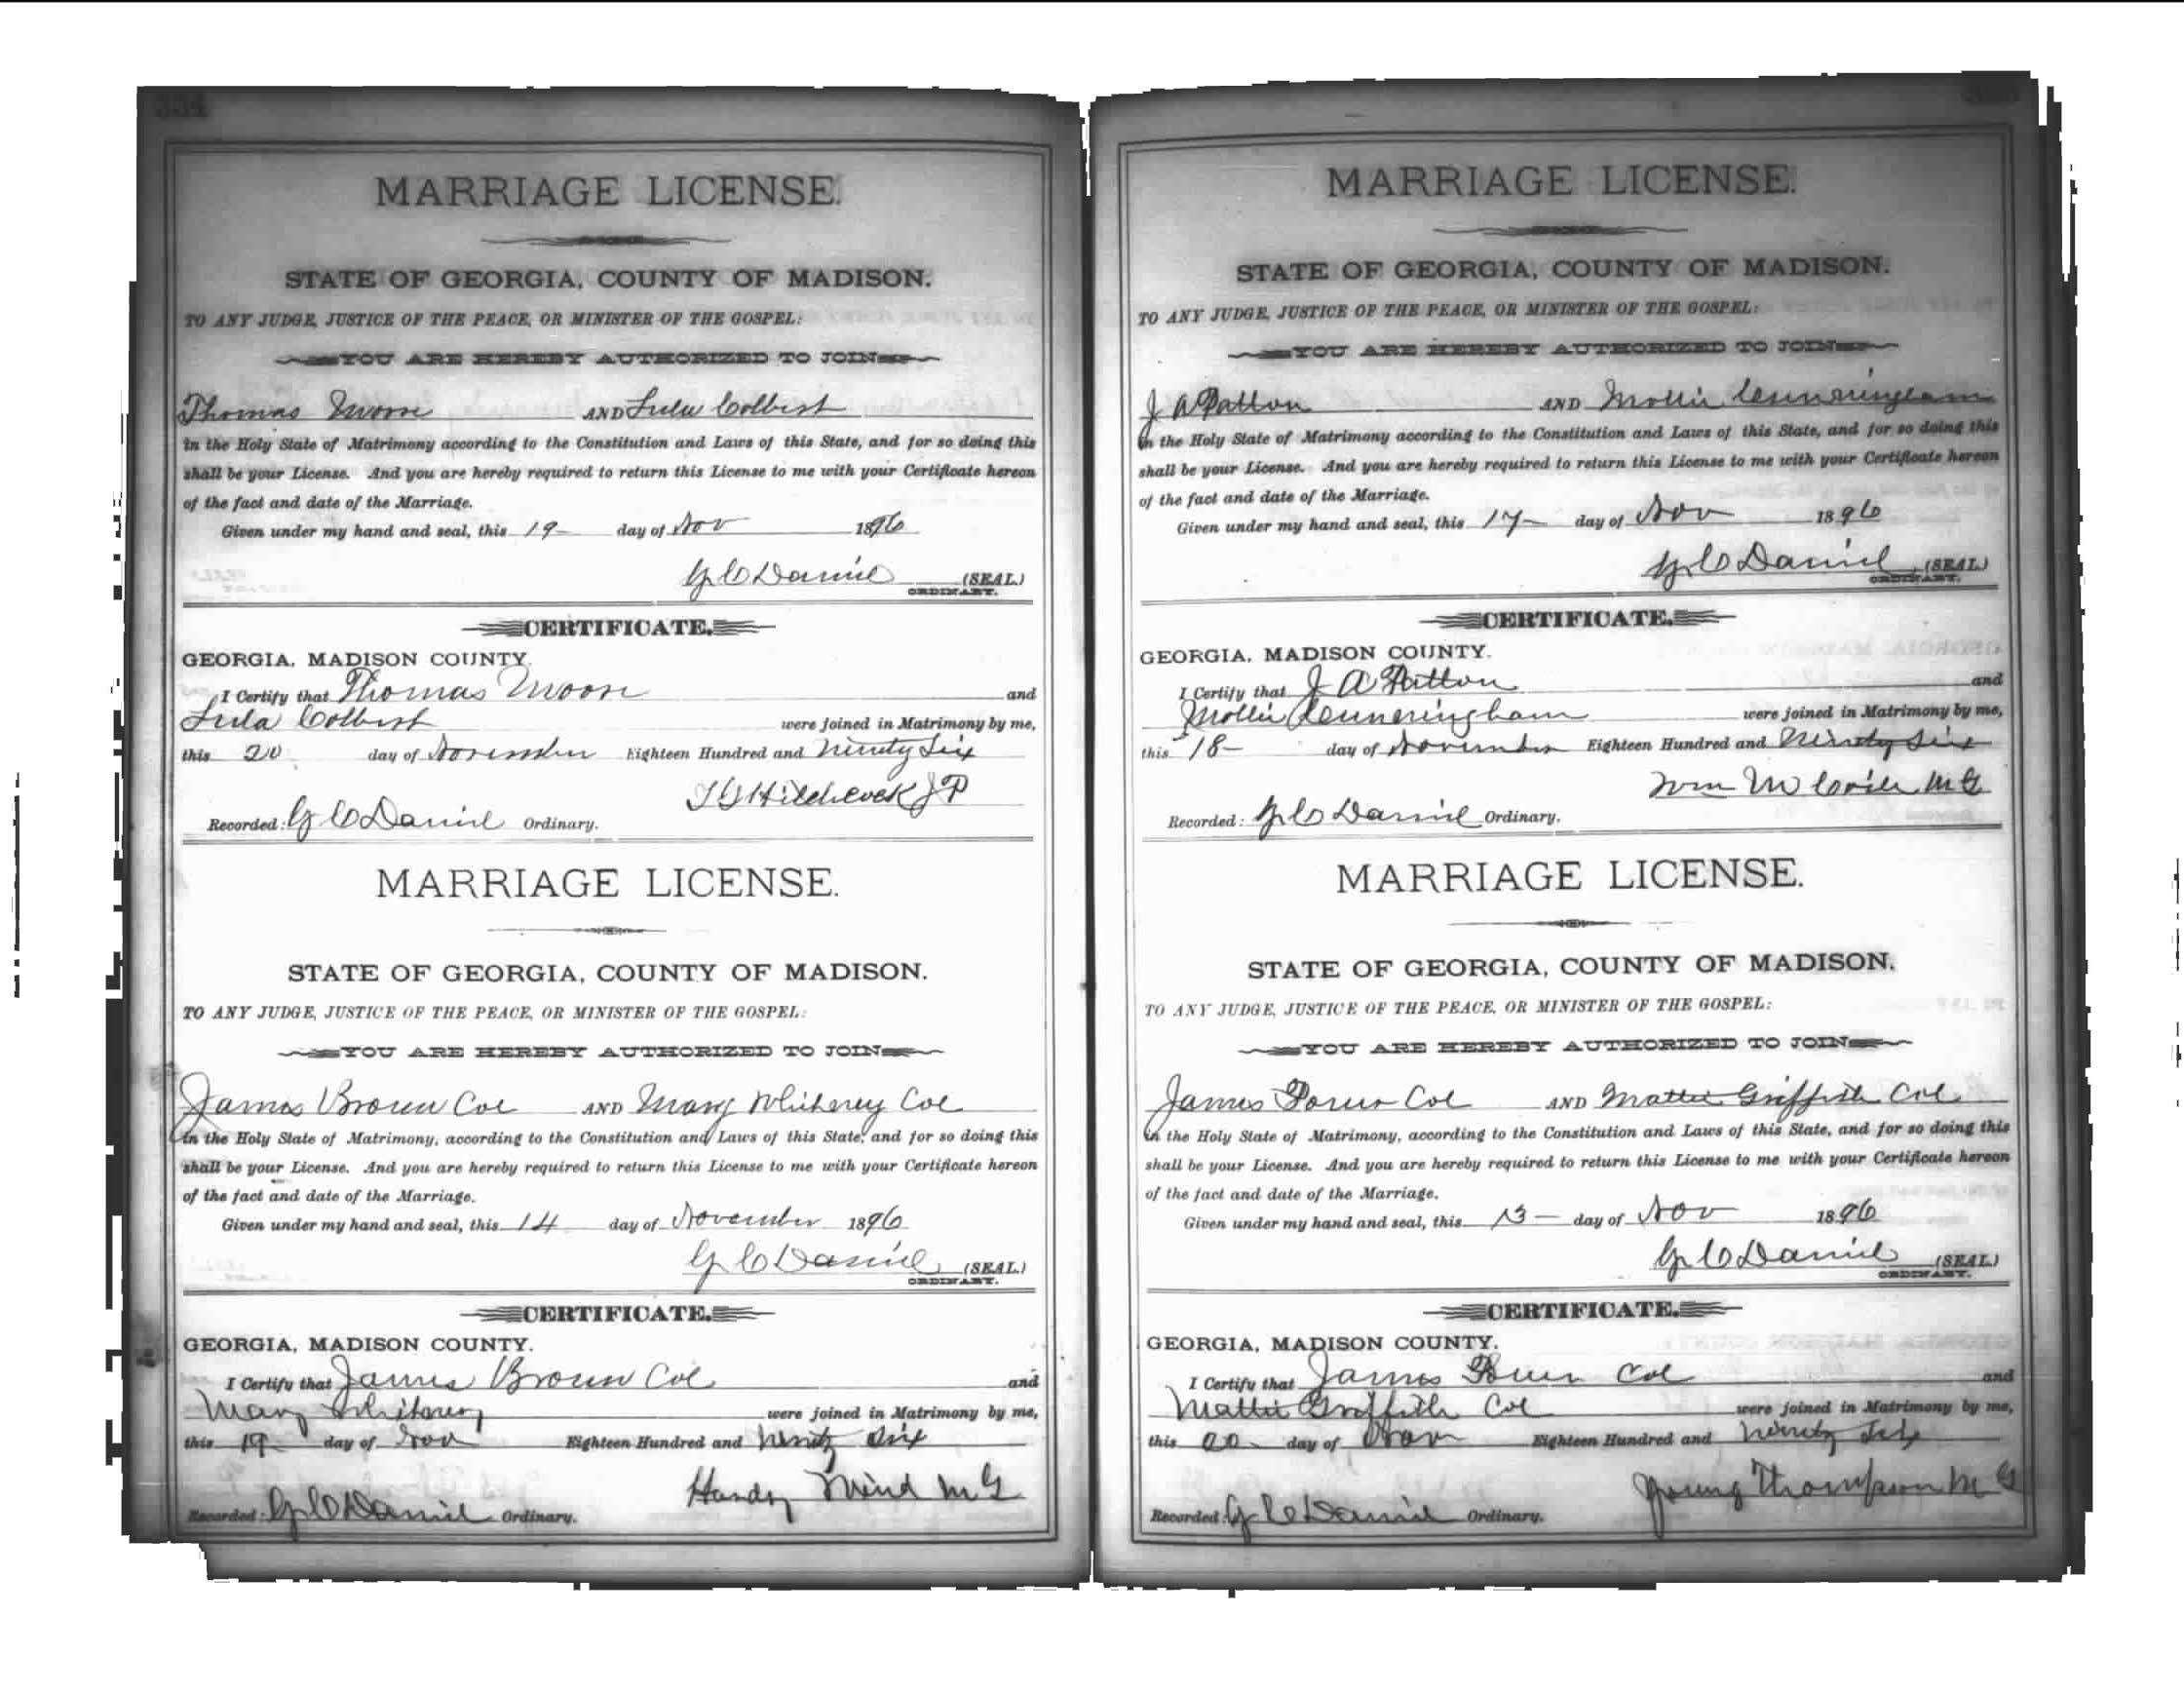 MARRIAGE LICENSE.
STATE OF GEORGIA, COUNTY OF MADISON.
TO ANY JUDGE, JUSTICE OF THE PEACE, OR MINISTER OF THE GOSPEL:
YOU ARE HEREBY AUTHORIZED TO JOIN
Thomas Moore AND Lula Colbert
in the Holy State of Matrimony according to the Constitution and Laws of this State, and for so doing this
shall be your License. And you are hereby required to return this License to me with your Certificate hereon
of the fact and date of the Marriage.
Given under my hand and seal, this 19 day of Nov 1896
G C Daniel (SEAL)
ORDINARY.
CERTIFICATE.
GEORGIA, MADISON COUNTY.
I Certify that Thomas Moore and
Lula Colbert were joined in Matrimony by me,
this 20 day of November Eighteen Hundred and Ninety Six
Hitchcock J P
Recorded: G C Daniel Ordinary.
MARRIAGE LICENSE.
STATE OF GEORGIA, COUNTY OF MADISON.
TO ANY JUDGE, JUSTICE OF THE PEACE, OR MINISTER OF THE GOSPEL:
YOU ARE HEREBY AUTHORIZED TO JOIN
James Brown Col AND Mary Whitney Col
in the Holy State of Matrimony, according to the Constitution and Laws of this State, and for so doing this
shall be your License. And you are hereby required to return this License to me with your Certificate hereon
of the fact and date of the Marriage.
Given under my hand and seal, this 14 day of November 1896
G C Daniel (SEAL.)
ORDINARY.
CERTIFICATE.
GEORGIA, MADISON COUNTY.
I Certify that James Brown Col and
Mary were joined in Matrimony by me,
this 19 day of Nov Eighteen Hundred and Ninety Six
Handy M G
Recorded: G C Daniel Ordinary.
MARRIAGE LICENSE.
STATE OF GEORGIA, COUNTY OF MADISON.
TO ANY JUDGE, JUSTICE OF THE PEACE, OR MINISTER OF THE GOSPEL:
YOU ARE HEREBY AUTHORIZED TO JOIN
J A Patton AND Mollie Cunningham
in the Holy State of Matrimony according to the Constitution and Laws of this State, and for so doing this
shall be your License. And you are hereby required to return this License to me with your Certificate hereon
of the fact and date of the Marriage.
Given under my hand and seal, this 17 day of Nov 1896
G C Daniel (SEAL)
ORDINARY.
CERTIFICATE.
GEORGIA, MADISON COUNTY.
I Certify that J A Patton and
Mollie Cunningham were joined in Matrimony by me,
this 18 day of November Eighteen Hundred and Ninety Six
Wm M M G
Recorded: G C Daniel Ordinary.
MARRIAGE LICENSE.
STATE OF GEORGIA, COUNTY OF MADISON.
TO ANY JUDGE, JUSTICE OF THE PEACE, OR MINISTER OF THE GOSPEL:
YOU ARE HEREBY AUTHORIZED TO JOIN
James Col AND Mattie Griffith Col
in the Holy State of Matrimony, according to the Constitution and Laws of this State, and for so doing this
shall be your License. And you are hereby required to return this License to me with your Certificate hereon
of the fact and date of the Marriage.
Given under my hand and seal, this 13 day of Nov 1896
G C Daniel (SEAL)
ORDINARY.
CERTIFICATE.
GEORGIA, MADISON COUNTY.
I Certify that James Col and
Mattie Griffith Col were joined in Matrimony by me,
this day of Nov Eighteen Hundred and Ninety Six
Young Thompson M G
Recorded: G C Daniel Ordinary.